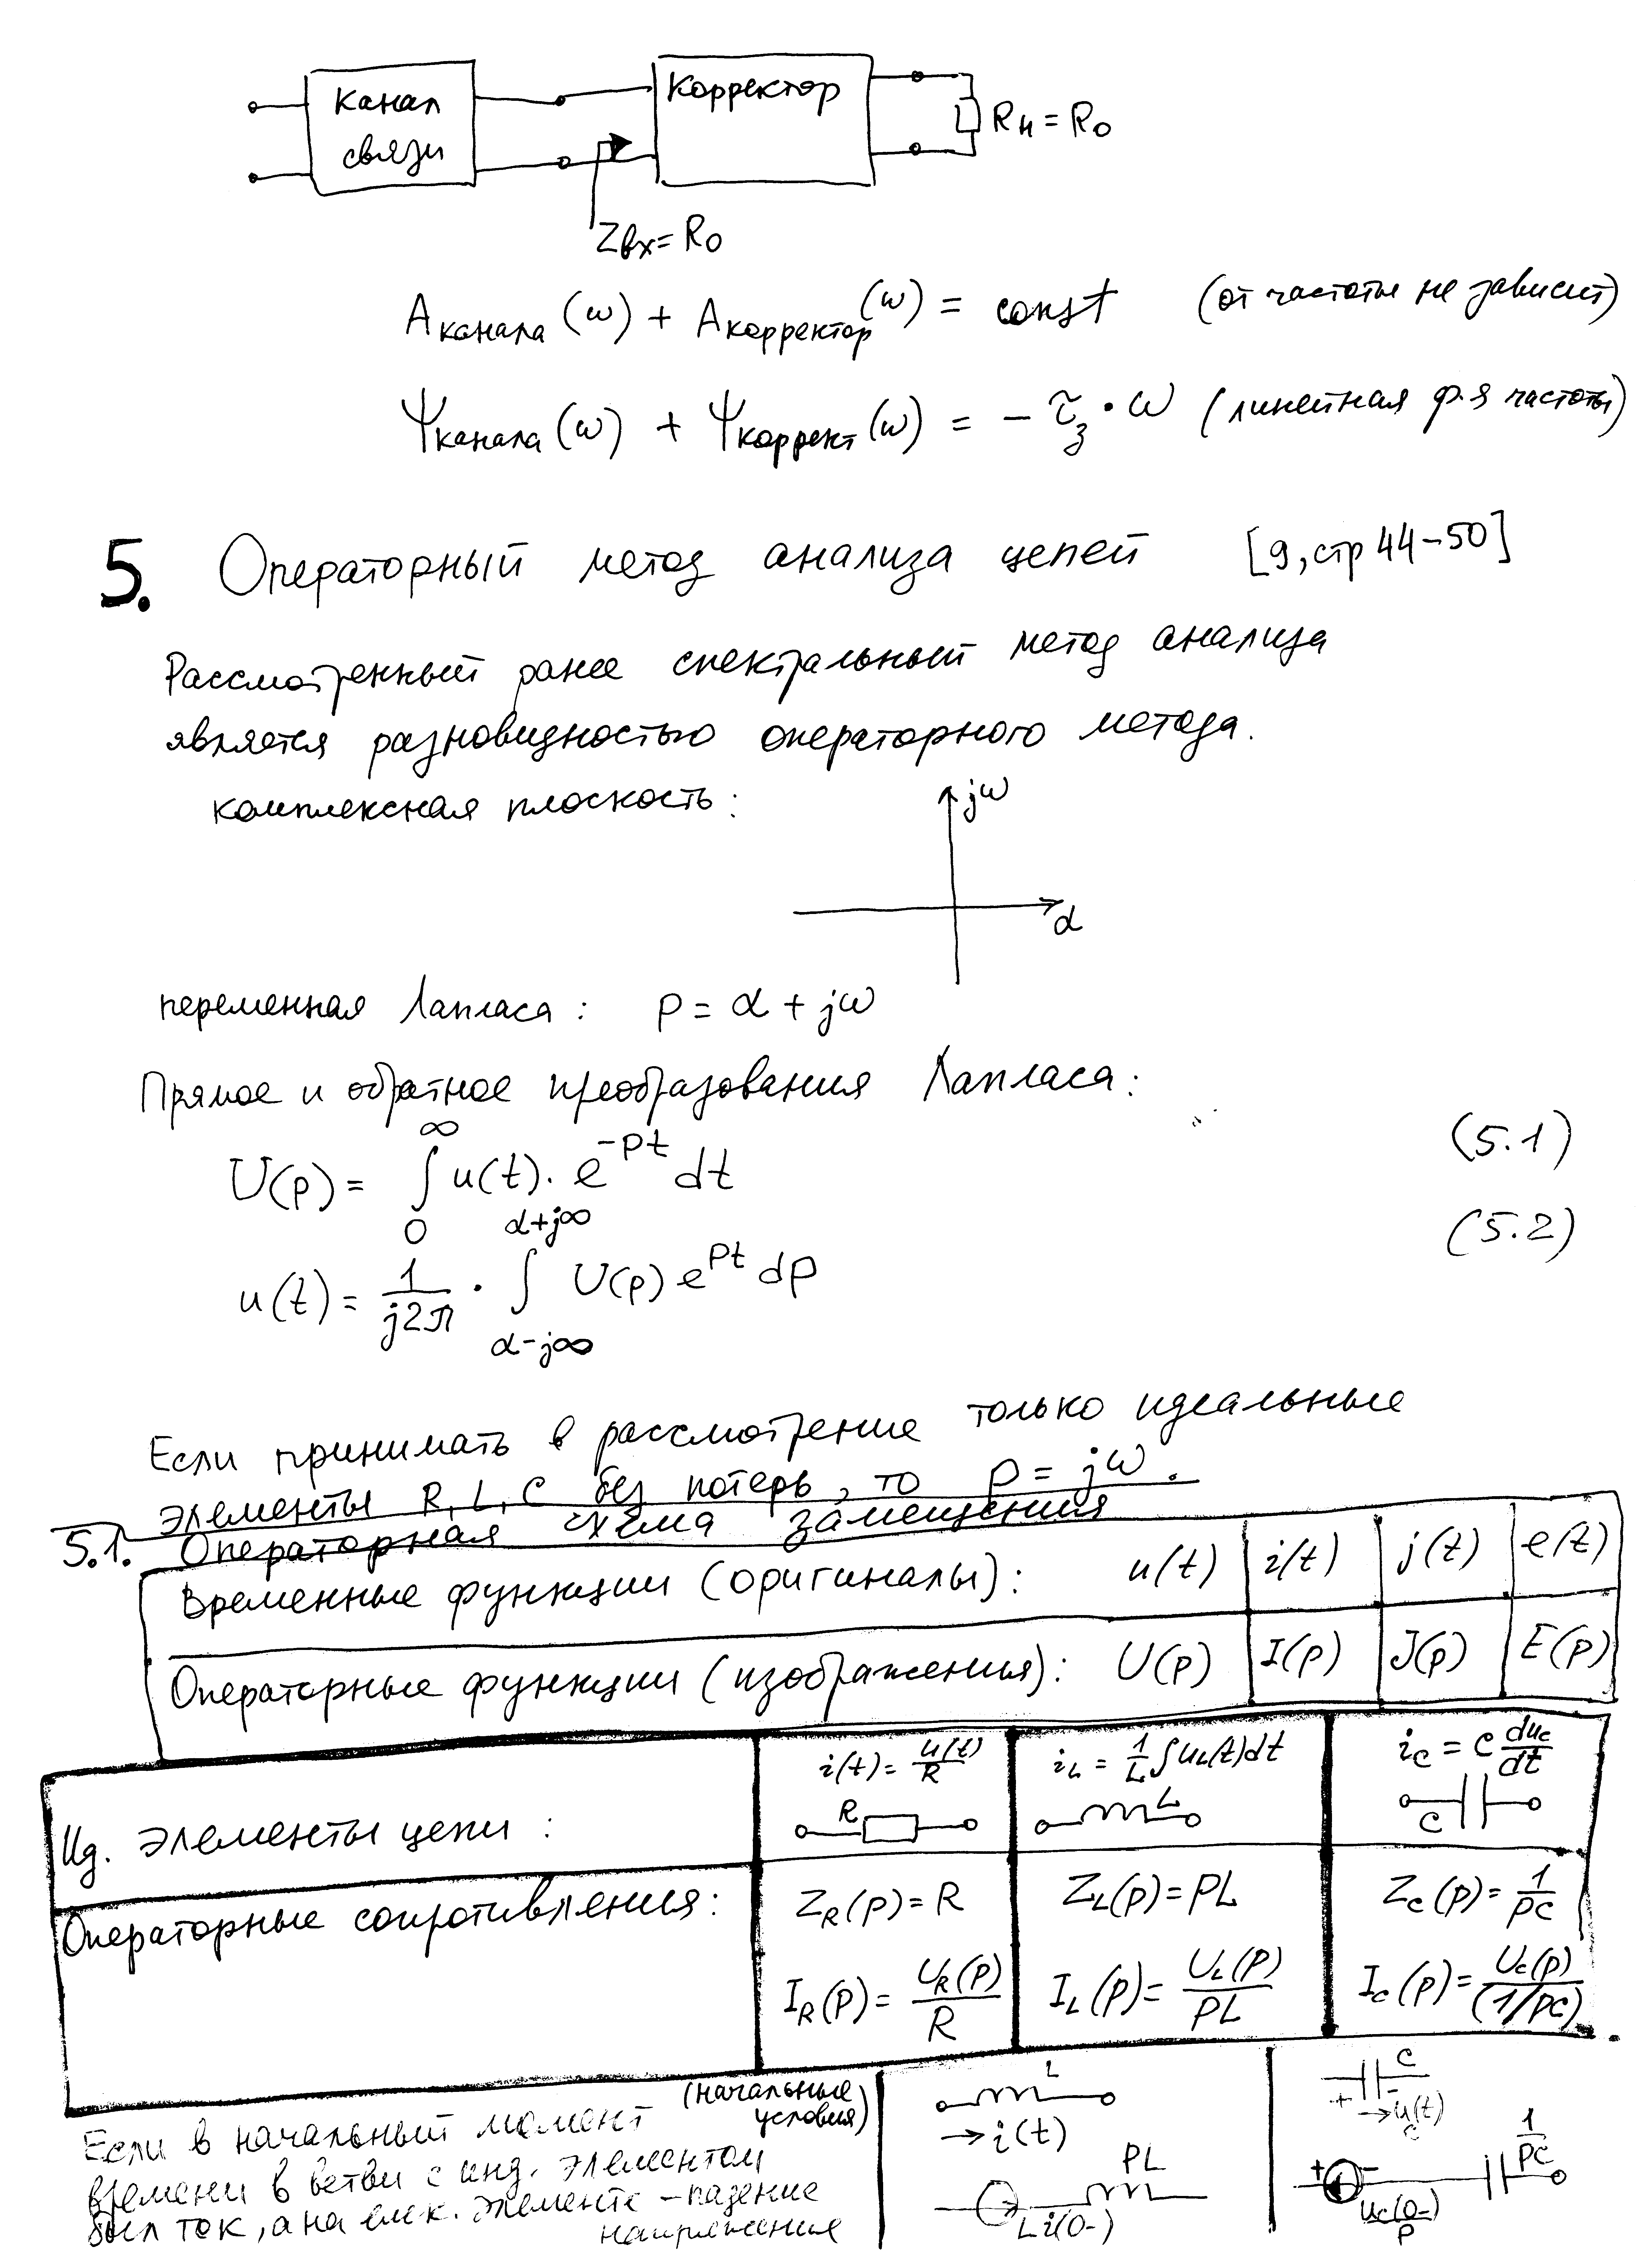 Канал
связи
Корректор
Rн = R0
Zвх = R0
Aканала(ω) + Aкорректор(ω) = const (от частоты не зависит)
Ψканала(ω) + Ψкоррект(ω) = - τз · ω (линейная ф-я частоты)
5. Операторный метод анализа цепей [9, стр 44-50]
Рассмотренный ранее спектральный метод анализа
является разновидностью операторного метода.
комплексная плоскость:
jω
α
переменная Лапласа: p = α + jω
Прямое и обратное преобразования Лапласа:
U(p) = ∫₀^∞ u(t) · e^{-pt} dt (5.1)
u(t) = 1/(j2π) · ∫_{α-j∞}^{α+j∞} U(p) e^{pt} dp (5.2)
Если принимать в рассмотрение только идеальные
элементы R, L, C без потерь, то p = jω.
5.1. Операторная схема замещения
Временные функции (оригиналы): u(t) i(t) j(t) e(t)
Операторные функции (изображения): U(p) I(p) J(p) E(p)
i(t) = u(t)/R iL = 1/L ∫uL(t)dt iC = C duC/dt
Ид. элементы цепи: R L C
Операторные сопротивления: ZR(p) = R ZL(p) = pL ZC(p) = 1/pC
IR(p) = UR(p)/R IL(p) = UL(p)/pL IC(p) = UC(p)/(1/pC)
(начальные
условия)
Если в начальный момент
времени в ветви с инд. элементом
был ток, а на емк. элементе - падение
напряжения
L
→ i(t)
pL
Li(0-)
C
+ -
→ u(t)
c
1/pC
+ -
uc(0-)/p